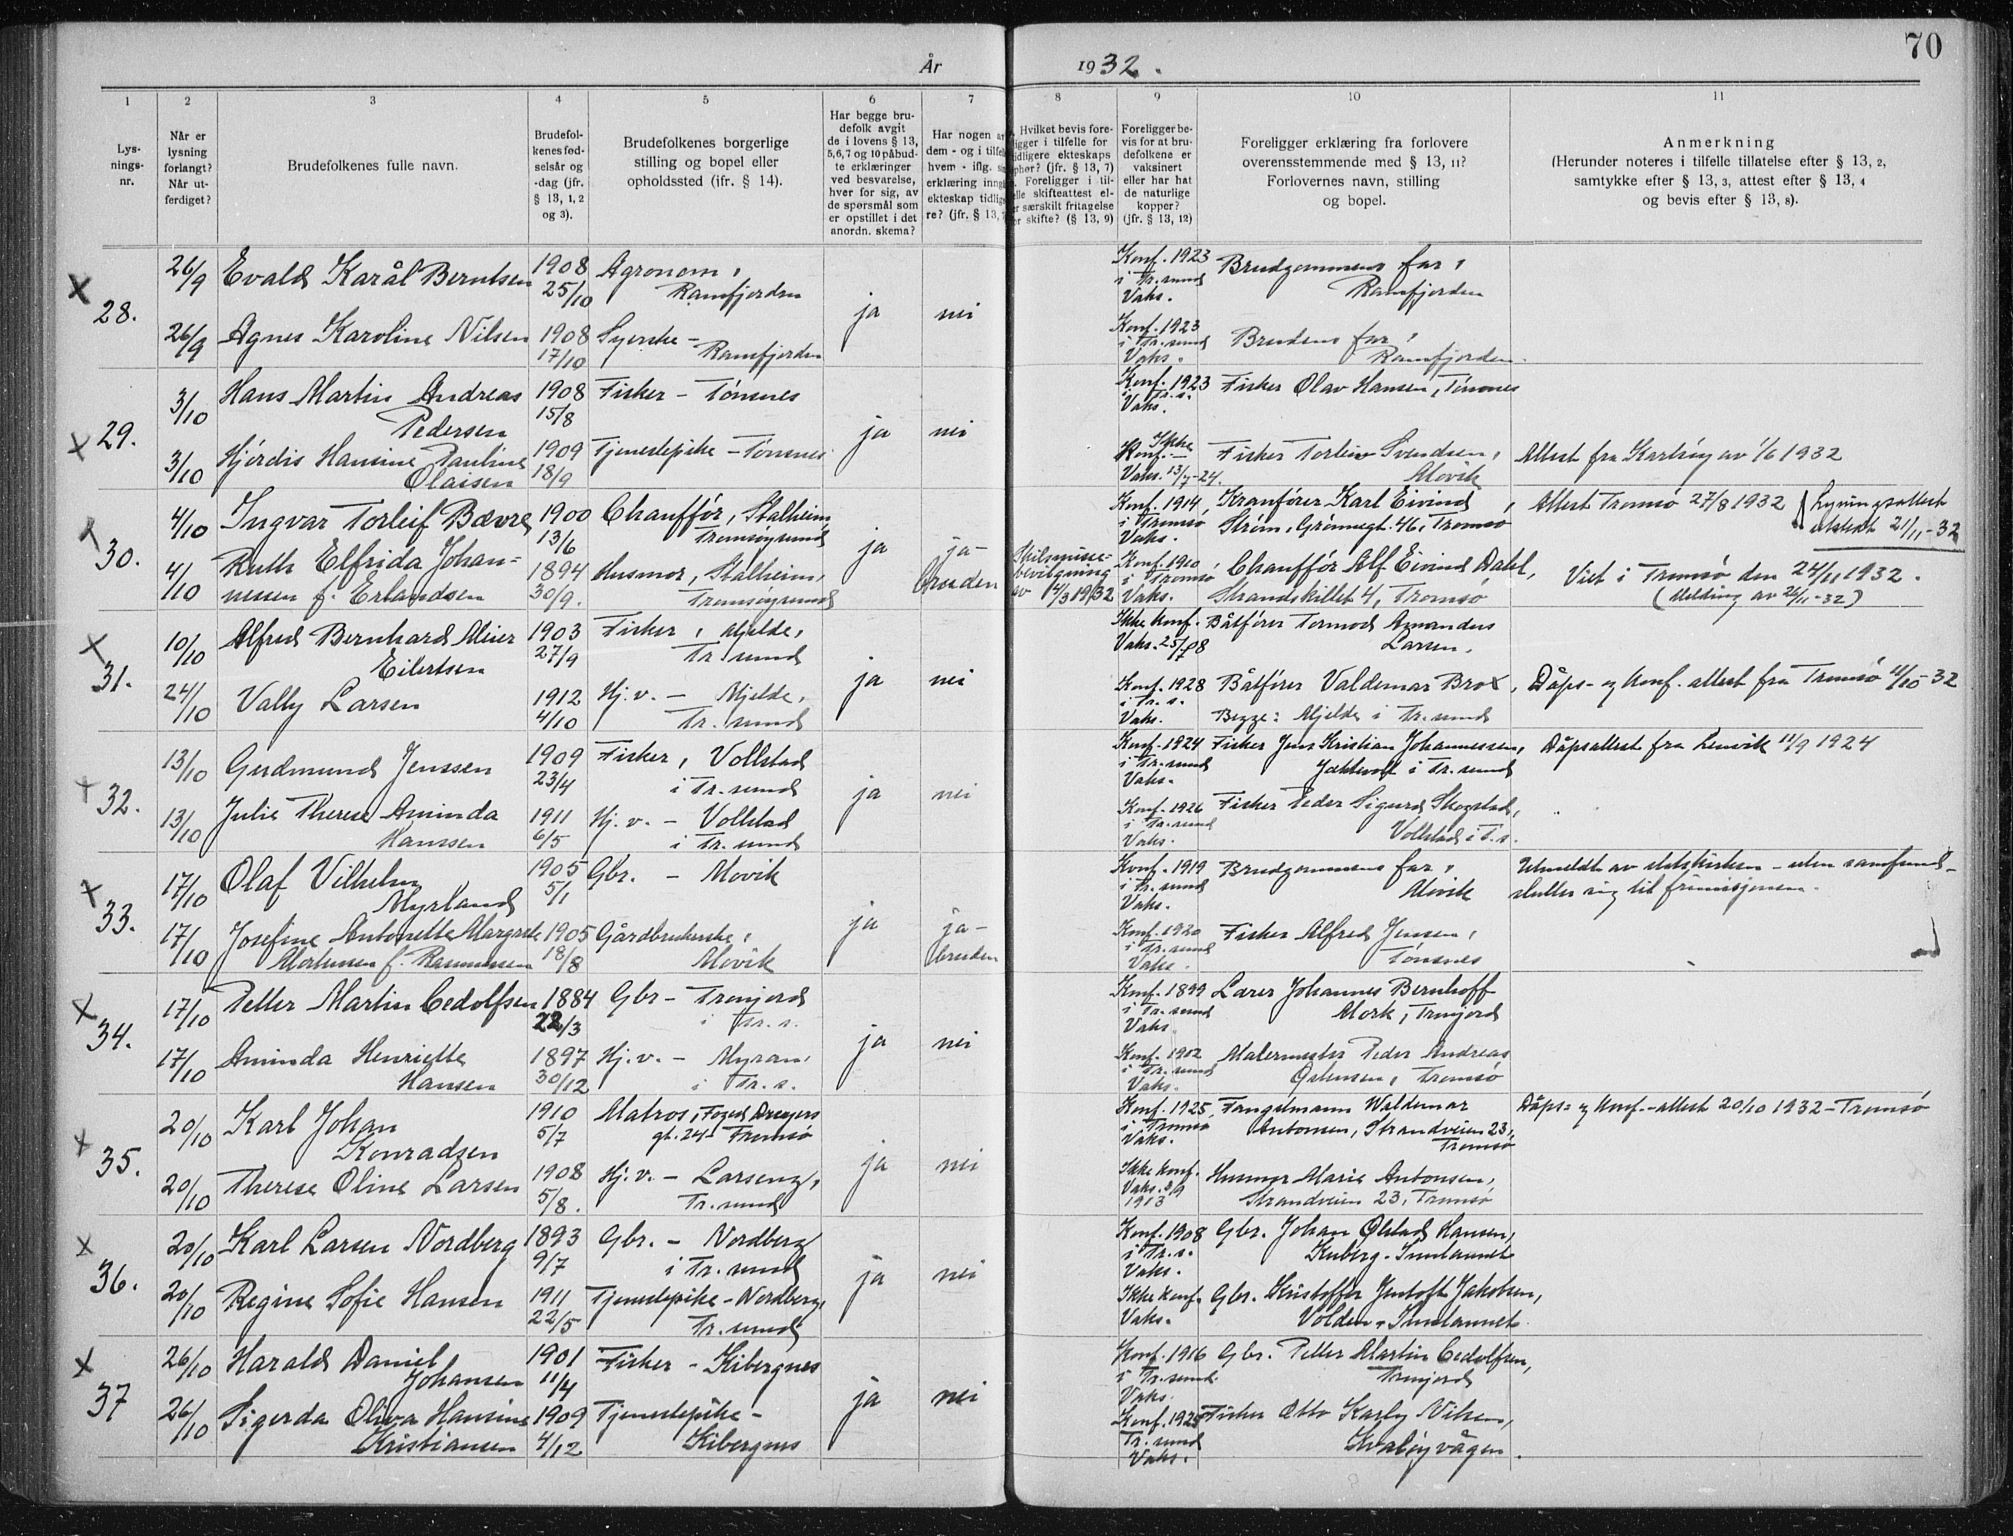 70
År 1932.
1 2 3 4 5 6 7 8 9 10 11
Lysningsnr.
Når er lysning forlangt? Når utferdiget?
Brudefolkenes fulle navn.
Brudefolkenes fødselsår og -dag (jfr. § 13, 1, 2 og 3).
Brudefolkenes borgerlige stilling og bopel eller opholdssted (ifr. § 14).
Har begge brudefolk avgit de i lovens § 13, 5,6,7 og 10 påbudte erklæringer ved besvarelse, hver for sig, av de spørsmål som er opstillet i det anordn. skema?
Har nogen av dem - og i tilfelle hvem - iflg. erklæring inngått ekteskap tidligere? (jfr. § 13,
Hvilket bevis foreligger i tilfelle for tidligere ekteskaps ophør? (jfr. § 13, 7) Foreligger i tilfelle skifteattest eller særskilt fritagelse for skifte? (§ 13, 9)
Foreligger bevis for at brudefolkene er vaksinert eller har hat de naturlige kopper? (jfr. § 13, 12)
Foreligger erklæring fra forlovere overensstemmende med § 13, 11? Forlovernes navn, stilling og bopel.
Anmerkning (Herunder noteres i tilfelle tillatelse efter § 13, 2, samtykke efter § 13, 3, attest efter § 13, 4 og bevis efter § 13, 8).
x 28. 26/9 Evald Karål Berntsen 1908 25/10 Agronom, Ramfjorden ja nei Konf. 1923 i Tr.sund Vaks. Brudgommens far, Ramfjorden
26/9 Agnes Karoline Nilsen 1908 17/10 Syerske - Ramfjorden Konf. 1923 i Tr.sund Vaks. Brudens far, Ramfjorden.
x 29. 3/10 Hans Martin Andreas Pedersen 1908 15/8 Fisker - Tønsnes ja nei Konf. 1923 i Tr. s. Vaks. Fisker Olav Hansen, Tønsnes
3/10 Hjørdis Hansine Pauline Olaisen 1909 18/9 Tjenestepike - Tønsnes Ikke Konf. Vaks. 13/7-24. Fisker Torleiv Svendsen, Movik Attest fra Karlsøy av 1/6 1932
x 30. 4/10 Ingvar Torleif Bævre 1900 13/6 Chauffør, Stalheim, Tromsøysund ja ja - bruden Konf. 1914, i Tromsø Vaks. Kranfører Karl Eivind Strøm, Grønnegt. 46, Tromsø Attest Tromsø 27/8 1932 Lysningsattest utstedt 21/11-32
4/10 Ruth Elfrida Johannessen f. Erlandsen 1894 30/9. Husmor, Stalheim, Tromsøysund Skilsmissebevilgning av 14/3 1932 Konf. 1910, i Tromsø Vaks. Chauffør Alf Eivind Dahl, Strandskillet 4, Tromsø Viet i Tromsø den 24/11 1932. (Melding av 26/11-32)
x 31. 10/10 Alfred Bernhard Meier Eilertsen 1903 27/9 Fisker, Mjelde, Tr. sund ja nei Ikke konf. Vaks. 25/7 08 Båtfører Tormod Amandus Larsen.
24/10 Vally Larsen 1912 4/10 Hj. v. - Mjelde, Tr. sund Konf. 1928 i Tr. s. Vaks. Båtfører Valdemar Brox, Begge: Mjelde i Tr. sund Dåps- og konf. attest fra Tromsø 11/10-32
x 32. 13/10 Gudmund Jenssen 1909 23/4 Fisker, Vollstad i Tr. sund ja nei Konf. 1924 i Tr. sund Vaks. Fisker Jens Kristian Johannessen, i Tr. sund Dåpsattest fra Lenvik 11/9 1924
13/10 Julie Therese Aminda Hanssen 1911 6/5 Hj. v. - Vollstad i Tr. sund Konf. 1926 i Tr. sund Vaks. Fisker Peder Sigurd Skogstad, Vollstad i T. s.
x 33. 17/10 Olaf Vilhelm Myrland 1905 5/1 Gbr. - Movik ja ja - bruden Konf. 1919 i Tr. sund Vaks. Brudgommens far, Movik Utmeldt av statskirken - uten samfund - slutter sig til frimisjonen.
17/10 Josefine Antonette Margrete Mortensen f. Rasmussen 1905 18/8 Gårdbrukerske, Movik Konf. 1920 i Tr. sund Vaks. Fisker Alfred Jensen, Tønsnes
x 34. 17/10 Petter Martin Cedolfsen 1884 22/3 Gbr - Trenjord i Tr. s. ja nei Konf. 1899 i Tr. sund Vaks. Lærer Johannes Bernhoff Mork, Trenjord
17/10 Aminda Henriette Hansen 1897 30/12 Hj. v. - Myran, i Tr. s. Konf. 1902 i Tr. sund Vaks. Malermester Peder Andreas Tromsø
x 35. 20/10 Karl Johan Konradsen 1910 5/7 Matros, Foged Dreyers gt. 24 - Tromsø ja nei Konf. 1925, i Tromsø Vaks. Fangstmann Waldemar Antonsen, Strandveien 23, Tromsø Dåps- og konf.-attest 20/10 1932 - Tromsø
20/10 Therese Oline Larsen 1908 5/8. Hj. v. - Larseng, Tr. sund Ikke konf. Vaks. 1913 Husmor Marie Antonsen, Strandveien 23, Tromsø
x 36. 20/10 Karl Larsen Nordberg 1893 9/7 Gbr. - Nordberg i Tr. sund ja nei Konf. 1908 i Tr. s. Vaks. Gbr. Johan Ølstad Hansen, Kuberg - Simlannet
20/10 Regine Sofie Hansen 1911 22/5 Tjenestepike - Nordberg, Tr. sund Ikke konf. Vaks. Gbr. Kristoffer Jentoft Jakobsen, Volden - Simlannet.
x 37 26/10 Harald Daniel Johansen 1901 11/4 Fisker - Kibergnes ja nei Konf. 1916 i Tr. sund Vaks. Gbr. Petter Martin Cedolfsen, Trenjord
26/10 Sigerda Oliva Hansine Kristiansen 1909 4/12 Tjenestepike - Kibergnes Konf. 1925 Tr. sund Vaks. Fisker Otto Karly Nilsen, Kvaløyvågen.